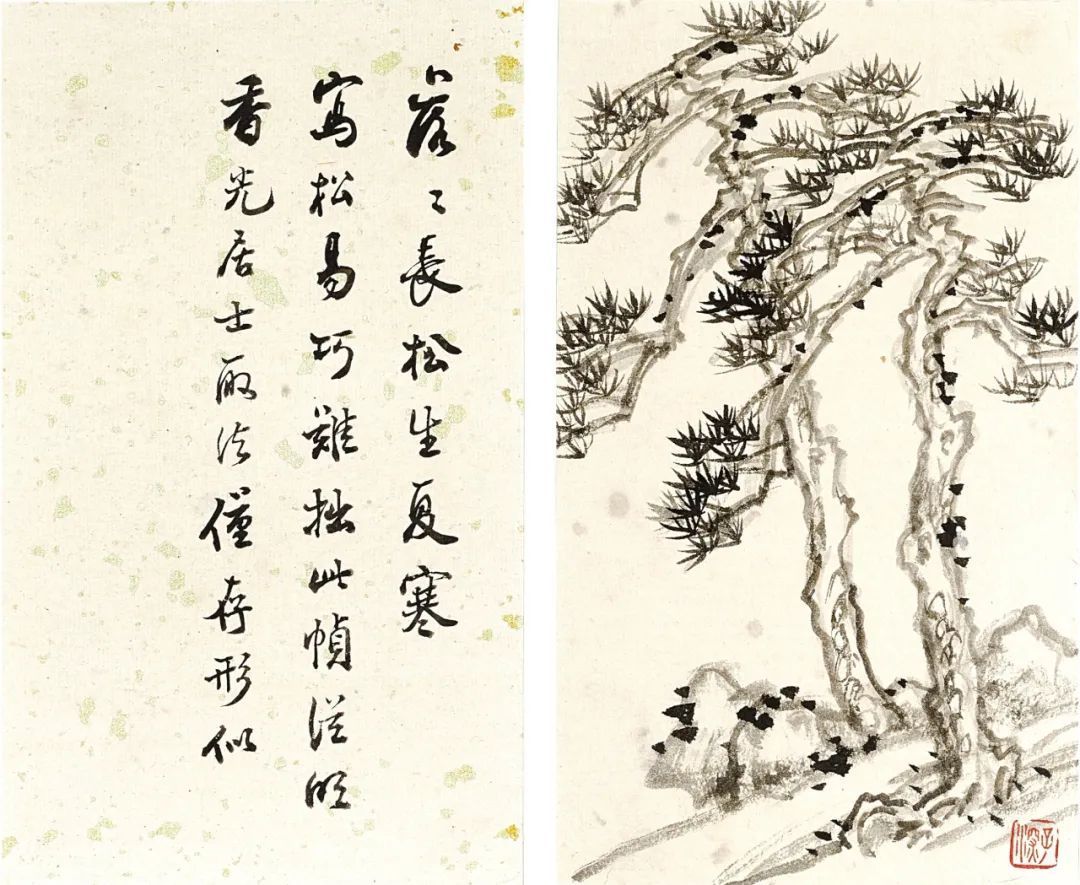 落〻長松生夏寒
寫松易巧難拙此幀從明
香光居士取法僅存形似
子深